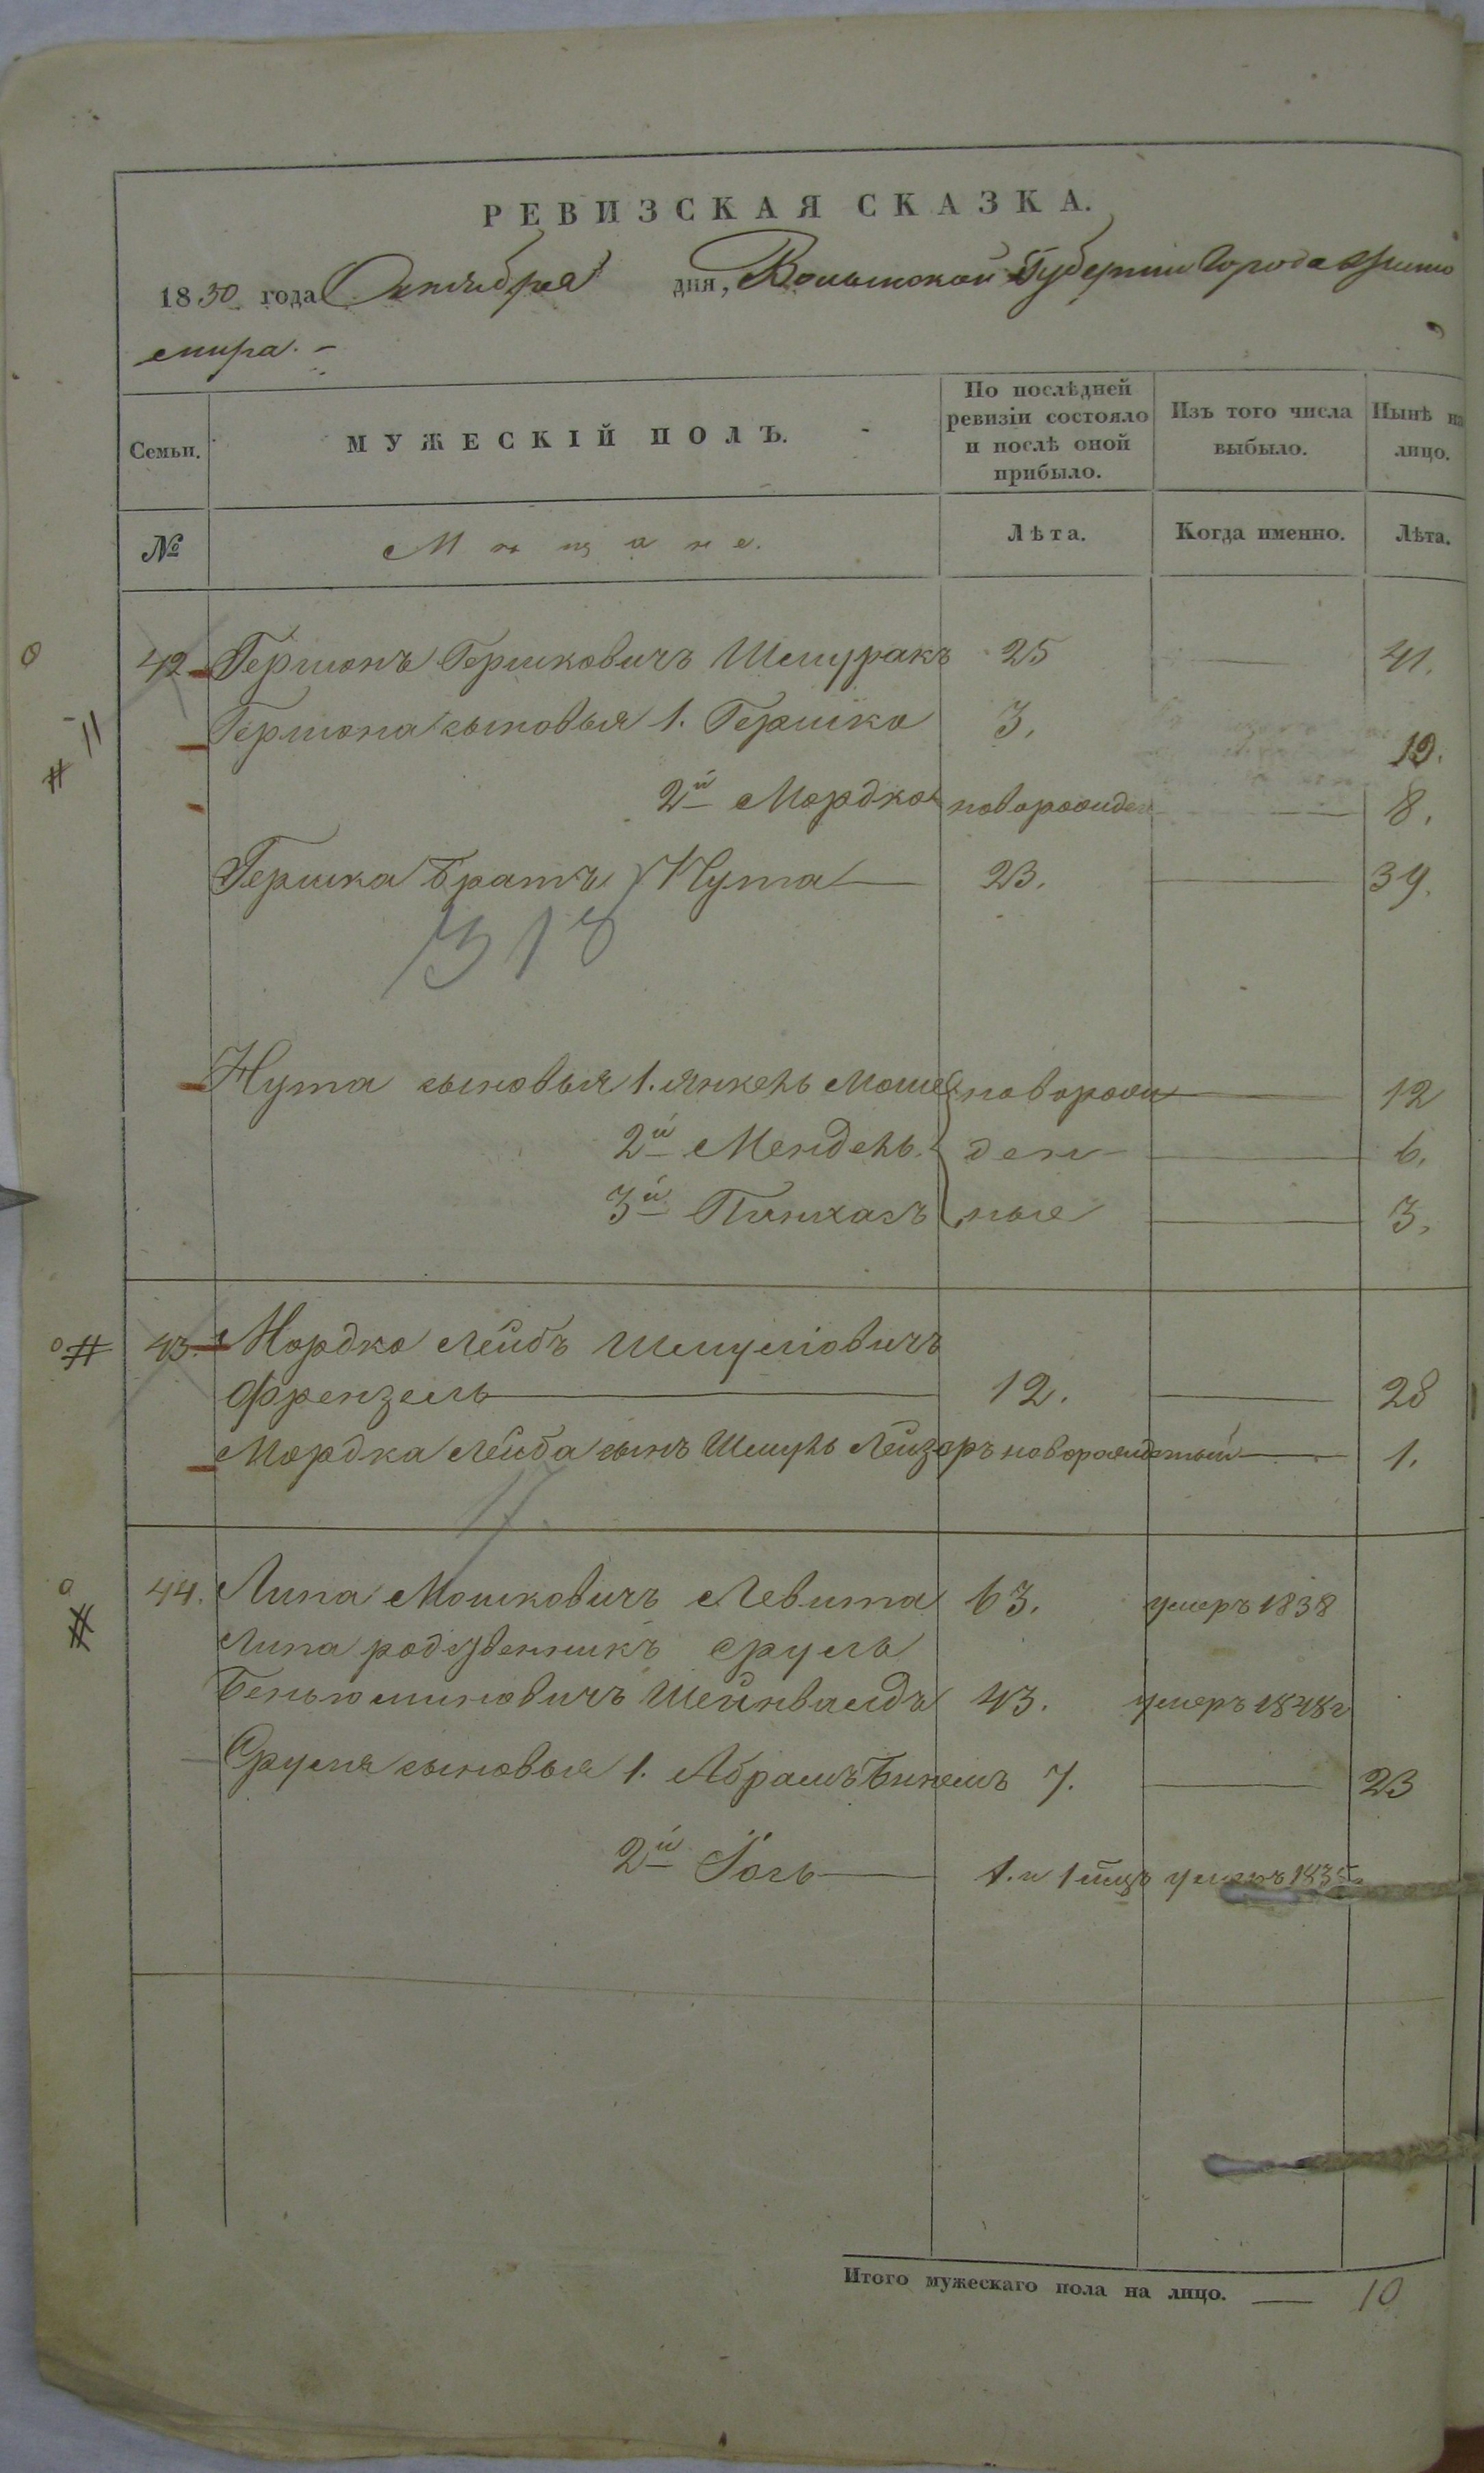 РЕВИЗСКАЯ СКАЗКА.
1850 года Октября дня, Волынской Губерніи Города Жито
мира. -
Семьи.
МУЖЕСКІЙ ПОЛЪ.
По послѣдней ревизіи состояло и послѣ оной прибыло.
Изъ того числа выбыло.
Нынѣ на лицо.
№
Мѣщане.
Лѣта.
Когда именно.
Лѣта.
42. Гершонъ Гершковичъ Шмуракъ 25 — 41.
Гершона сыновья 1. Гершко 3. 19.
2й Мордко новорожден — 8.
Гершка братъ Нута — 23. — 39.
318
Нута сыновья 1. Янкель Мошко новорож — 12
2й Мендель ден — 6.
3й Пинхасъ ные — 3.
43. Мордко Лейбъ Шмуліовичъ
Френзель — 12. — 28
Мордка Лейба сынъ Шмуль Лейзоръ новорожденный — 1.
17.
44. Липа Мошковичъ Левита 63. умеръ 1838
Липа родственникъ Сруль
Беньюминовичъ Шейнвалдъ 43. умеръ 1848г
Сруля сыновья 1. Абрамъ Бинемъ 7. — 23
2й Іось — 1. и 1 мцъ умеръ 1835
Итого мужескаго пола на лицо. — 10